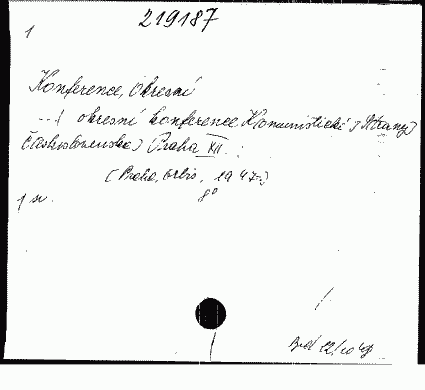 219187
1
Konference, Okresní
...í okresní konference Komunistické strany
Československa, Praha XII.
(Praha, Orbis, 1947.)
8°
1 sv.
12/10 48